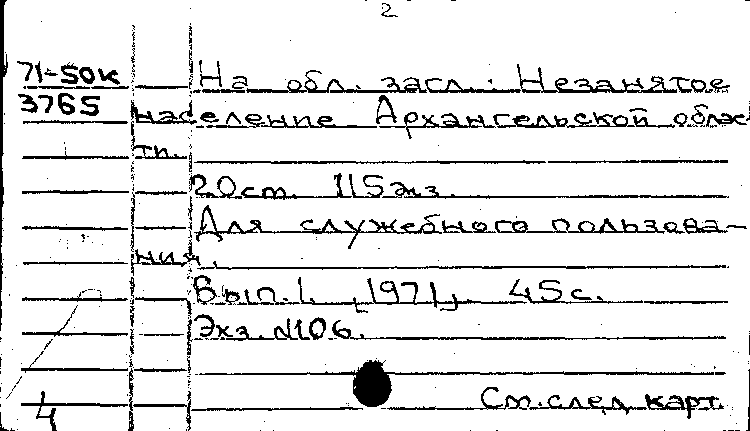 2
71-50к
3765
На обл. загл.: Незанятое
население Архангельской облас
ти.
20см. 115экз.
Для служебного пользова-
ния.
Вып.1. [1971]. 45с.
Экз.№106.
См.след карт.
4